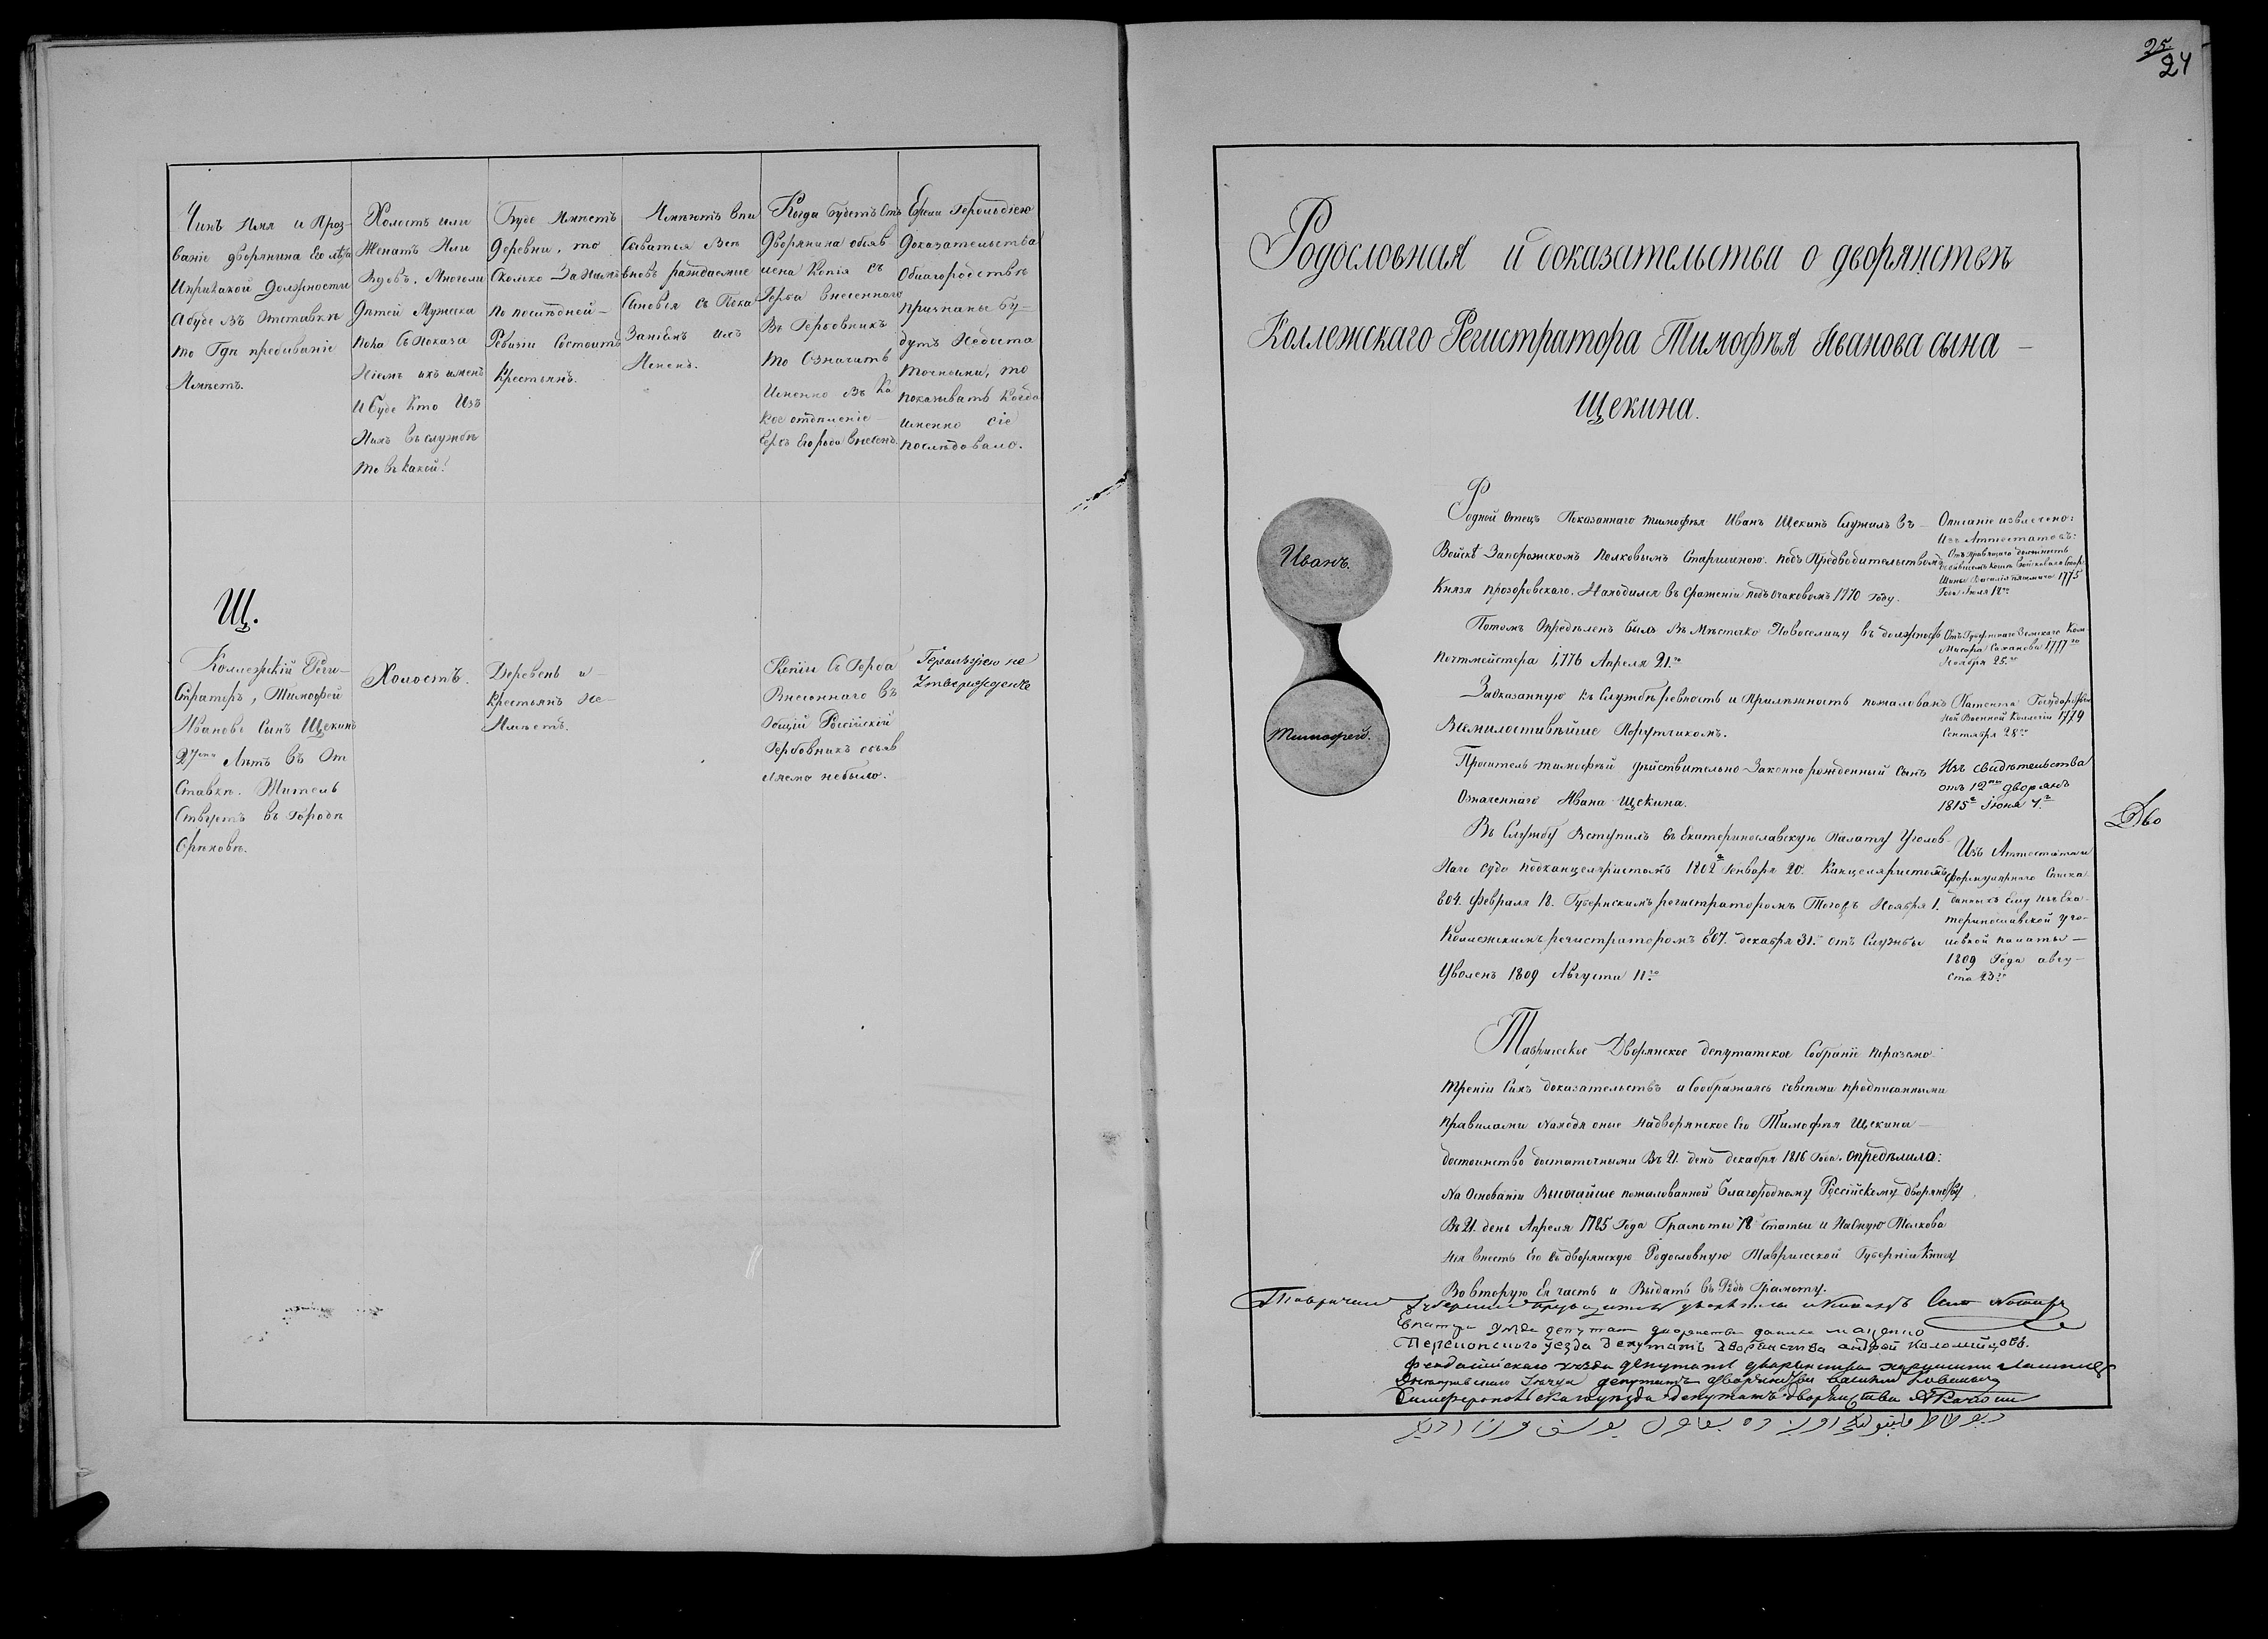 Чинъ Имя и Проз-
ваніе дворянина Его лѣта
И при какой Должности
А буде въ Отставкѣ
то Гдѣ пребываніе
Имѣетъ.
Холостъ или
Женатъ Или
Вдовъ, Многоли
Дѣтей Мужеска
пола Съ показа
ніемъ ихъ именъ
И буде Кто Изъ
Нихъ въ службѣ
то въ какой?
Буде Имѣетъ
деревни, то
Сколько За нимъ
по послѣдней-
Ревизіи Состоитъ
Крестьянъ.
Имѣютъ впи
Сыватся Всѣ
вновь раждаемые
Сыновья съ Пока
Заніемъ ихъ
Именъ.
Когда будетъ Отъ
Дворянина объяв
лена Копія съ
Герба внесеннаго
Въ Гербовникъ
то Означить
Именно Въ Ка
кое отдѣленіе
Гербъ Его рода внесенъ.
Ежели Герольдіею
Доказательства
О благородствѣ
признаны бу=
дутъ Недоста
точными, то
показывать Когда
именно сіе
послѣдовало.
Щ.
Коллежскій Реги-
Страторъ, Тимофей
Ивановъ Сынъ Щекинъ
27ми Лѣтъ въ От
Ставкѣ. Житель
Ствуетъ въ Городѣ
Орѣховѣ.
Холостъ.
Деревень и-
Крестьянъ Не-
Имѣетъ.
Копіи Съ Герба
Внесеннаго въ
Общій Россійскій
Гербовникъ объяв
ляемо небыло.
Герольдіею не
Утвержденъ
25/24
Родословная и доказательства о дворянствѣ
Коллежскаго Регистратора Тимофѣя Иванова сына -
Щекина.
Иванъ.
Тимофей.
Родной отецъ Показаннаго Тимофѣя Иванъ Щекинъ Служилъ въ-
Войскѣ Запорожскомъ Полковымъ Старшиною. подъ Предводительствомъ
Князя прозоровскаго. Находился въ Сраженіи подъ Очаковомъ 1770 году.
Описаніе извлечено:
Изъ Аттестатовъ:
Отъ правящаго должность
1775
Года Июля 18го
Потомъ Опредѣленъ былъ въ Мѣстечко Новоселицу въ должность
почтмейстера 1,776 Апреля 21.го
Земскаго Ком
1777го
Ноября 25го
За оказанную къ Службѣ ревность и прилѣжность пожалованъ
Всемилостивѣйше Порутчикомъ.
Патента Государствен
ной Военной Коллегіи 1779
Сентября 28го
Проситель тимофѣй дѣйствительно Законно рожденный Сынъ
Означеннаго Ивана Щекина.
Изъ свидѣтельства
отъ 12ти дворянъ
1815г Іюня 7.г
Въ Службу Вступилъ въ Екатеринославскую Палату Уголов-
Наго суда подканцеляристомъ 1802го Генваря 20. Канцеляристомъ
804. Февраля 18. Губернскимъ регистраторомъ Тогожъ Ноября 1.
Коллежскимъ регистраторомъ 807. декабря 31. отъ Службы
Уволенъ 1809 Августа 11го
Изъ Аттестата и
формулярнаго Списка
данныхъ ему изъ Ека-
теринославской уго-
ловной палаты-
1809 Года авгу-
ста 23го
Дво
Таврическое Дворянское депутатское Собраніе поразсмо
треніи Сихъ доказательствъ и Сообразжаясь совсѣми предписанными
правилами Находя оные Надворянское Его Тимофѣя Щекина-
достоинство достаточными Въ 21. день декабря 1816 Года. опредѣлила:
На Основаніи Высочайше пожалованной благородному Россійскому дворянству
Въ 21. день Апреля 1785 Года Грамоты 78 Статьи и Наоную Толкова
нія внесть Его въ дворянскую Родословную Таврической Губерніи Книгу
Во вторую Ея часть и Выдать въ Родъ Грамоту.
депутат дворянства
уезда депутатъ Дворянства андрей Коломийцовъ.
Феодосійскаго уезда депутатъ дворянства
депутатъ дворянства
Симферопольскаго уѣзда Депутатъ дворянства